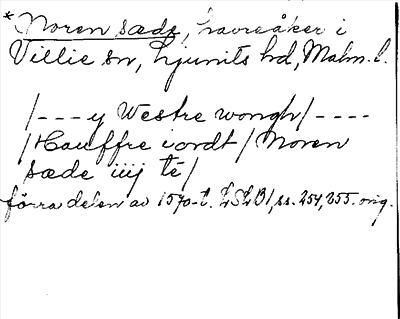 *Noren sæde, havreåker i
Villie sn, Ljunits hd, Malm. l.
/---y Westre wongh/----
/Hauffre iordt/Noren
sæde iiij te/
förra delen av 1570-t. LSLB1, ss. 254, 255. orig.